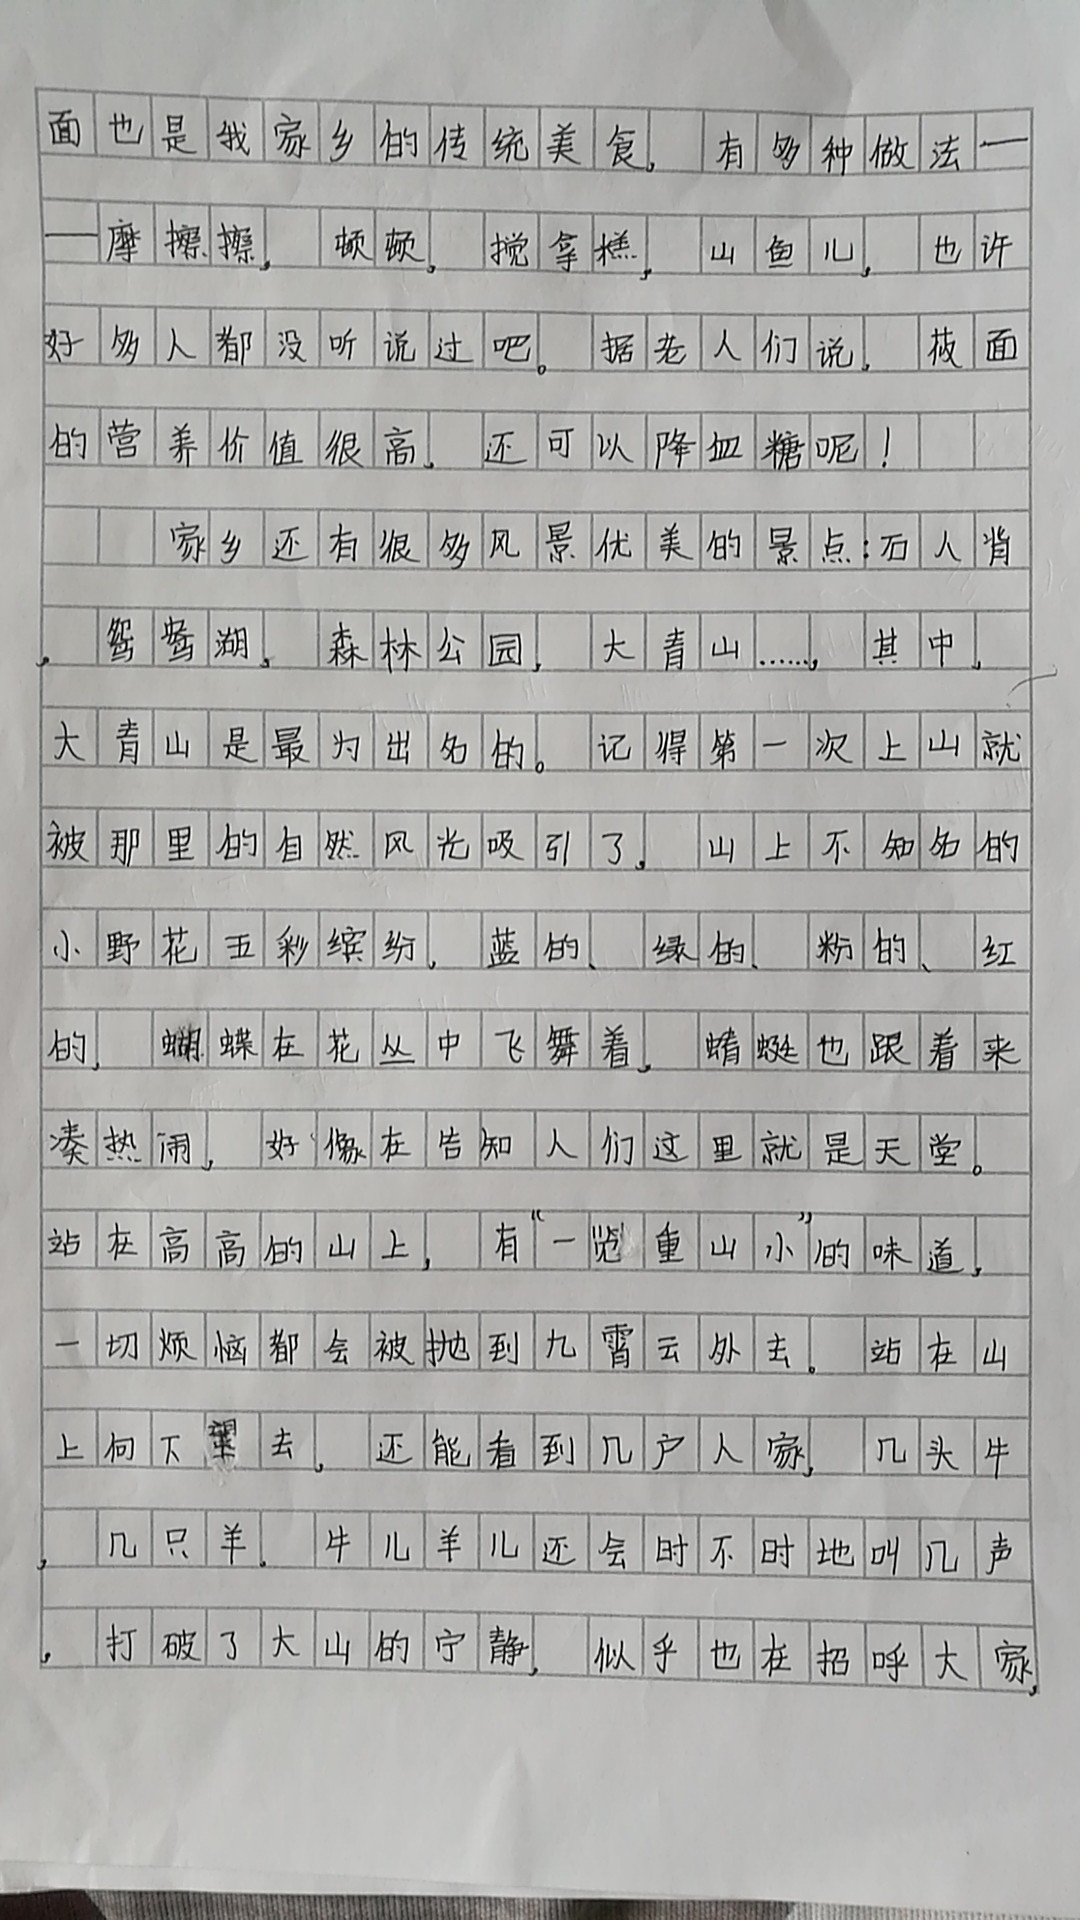 面也是我家乡的传统美食，有多种做法—
—摩擦擦，顿顿，搅拿糕，山鱼儿，也许
好多人都没听说过吧。据老人们说，莜面
的营养价值很高，还可以降血糖呢！
家乡还有很多风景优美的景点：石人背
，鸳鸯湖，森林公园，大青山……，其中，
大青山是最为出名的。记得第一次上山就
被那里的自然风光吸引了，山上不知名的
小野花五彩缤纷，蓝的、绿的、粉的、红
的，蝴蝶在花丛中飞舞着，蜻蜓也跟着来
凑热闹，好像在告知人们这里就是天堂。
站在高高的山上，有“一览重山小”的味道，
一切烦恼都会被抛到九霄云外去。站在山
上向下望去，还能看到几户人家，几头牛
，几只羊，牛儿羊儿还会时不时地叫几声
，打破了大山的宁静，似乎也在招呼大家，